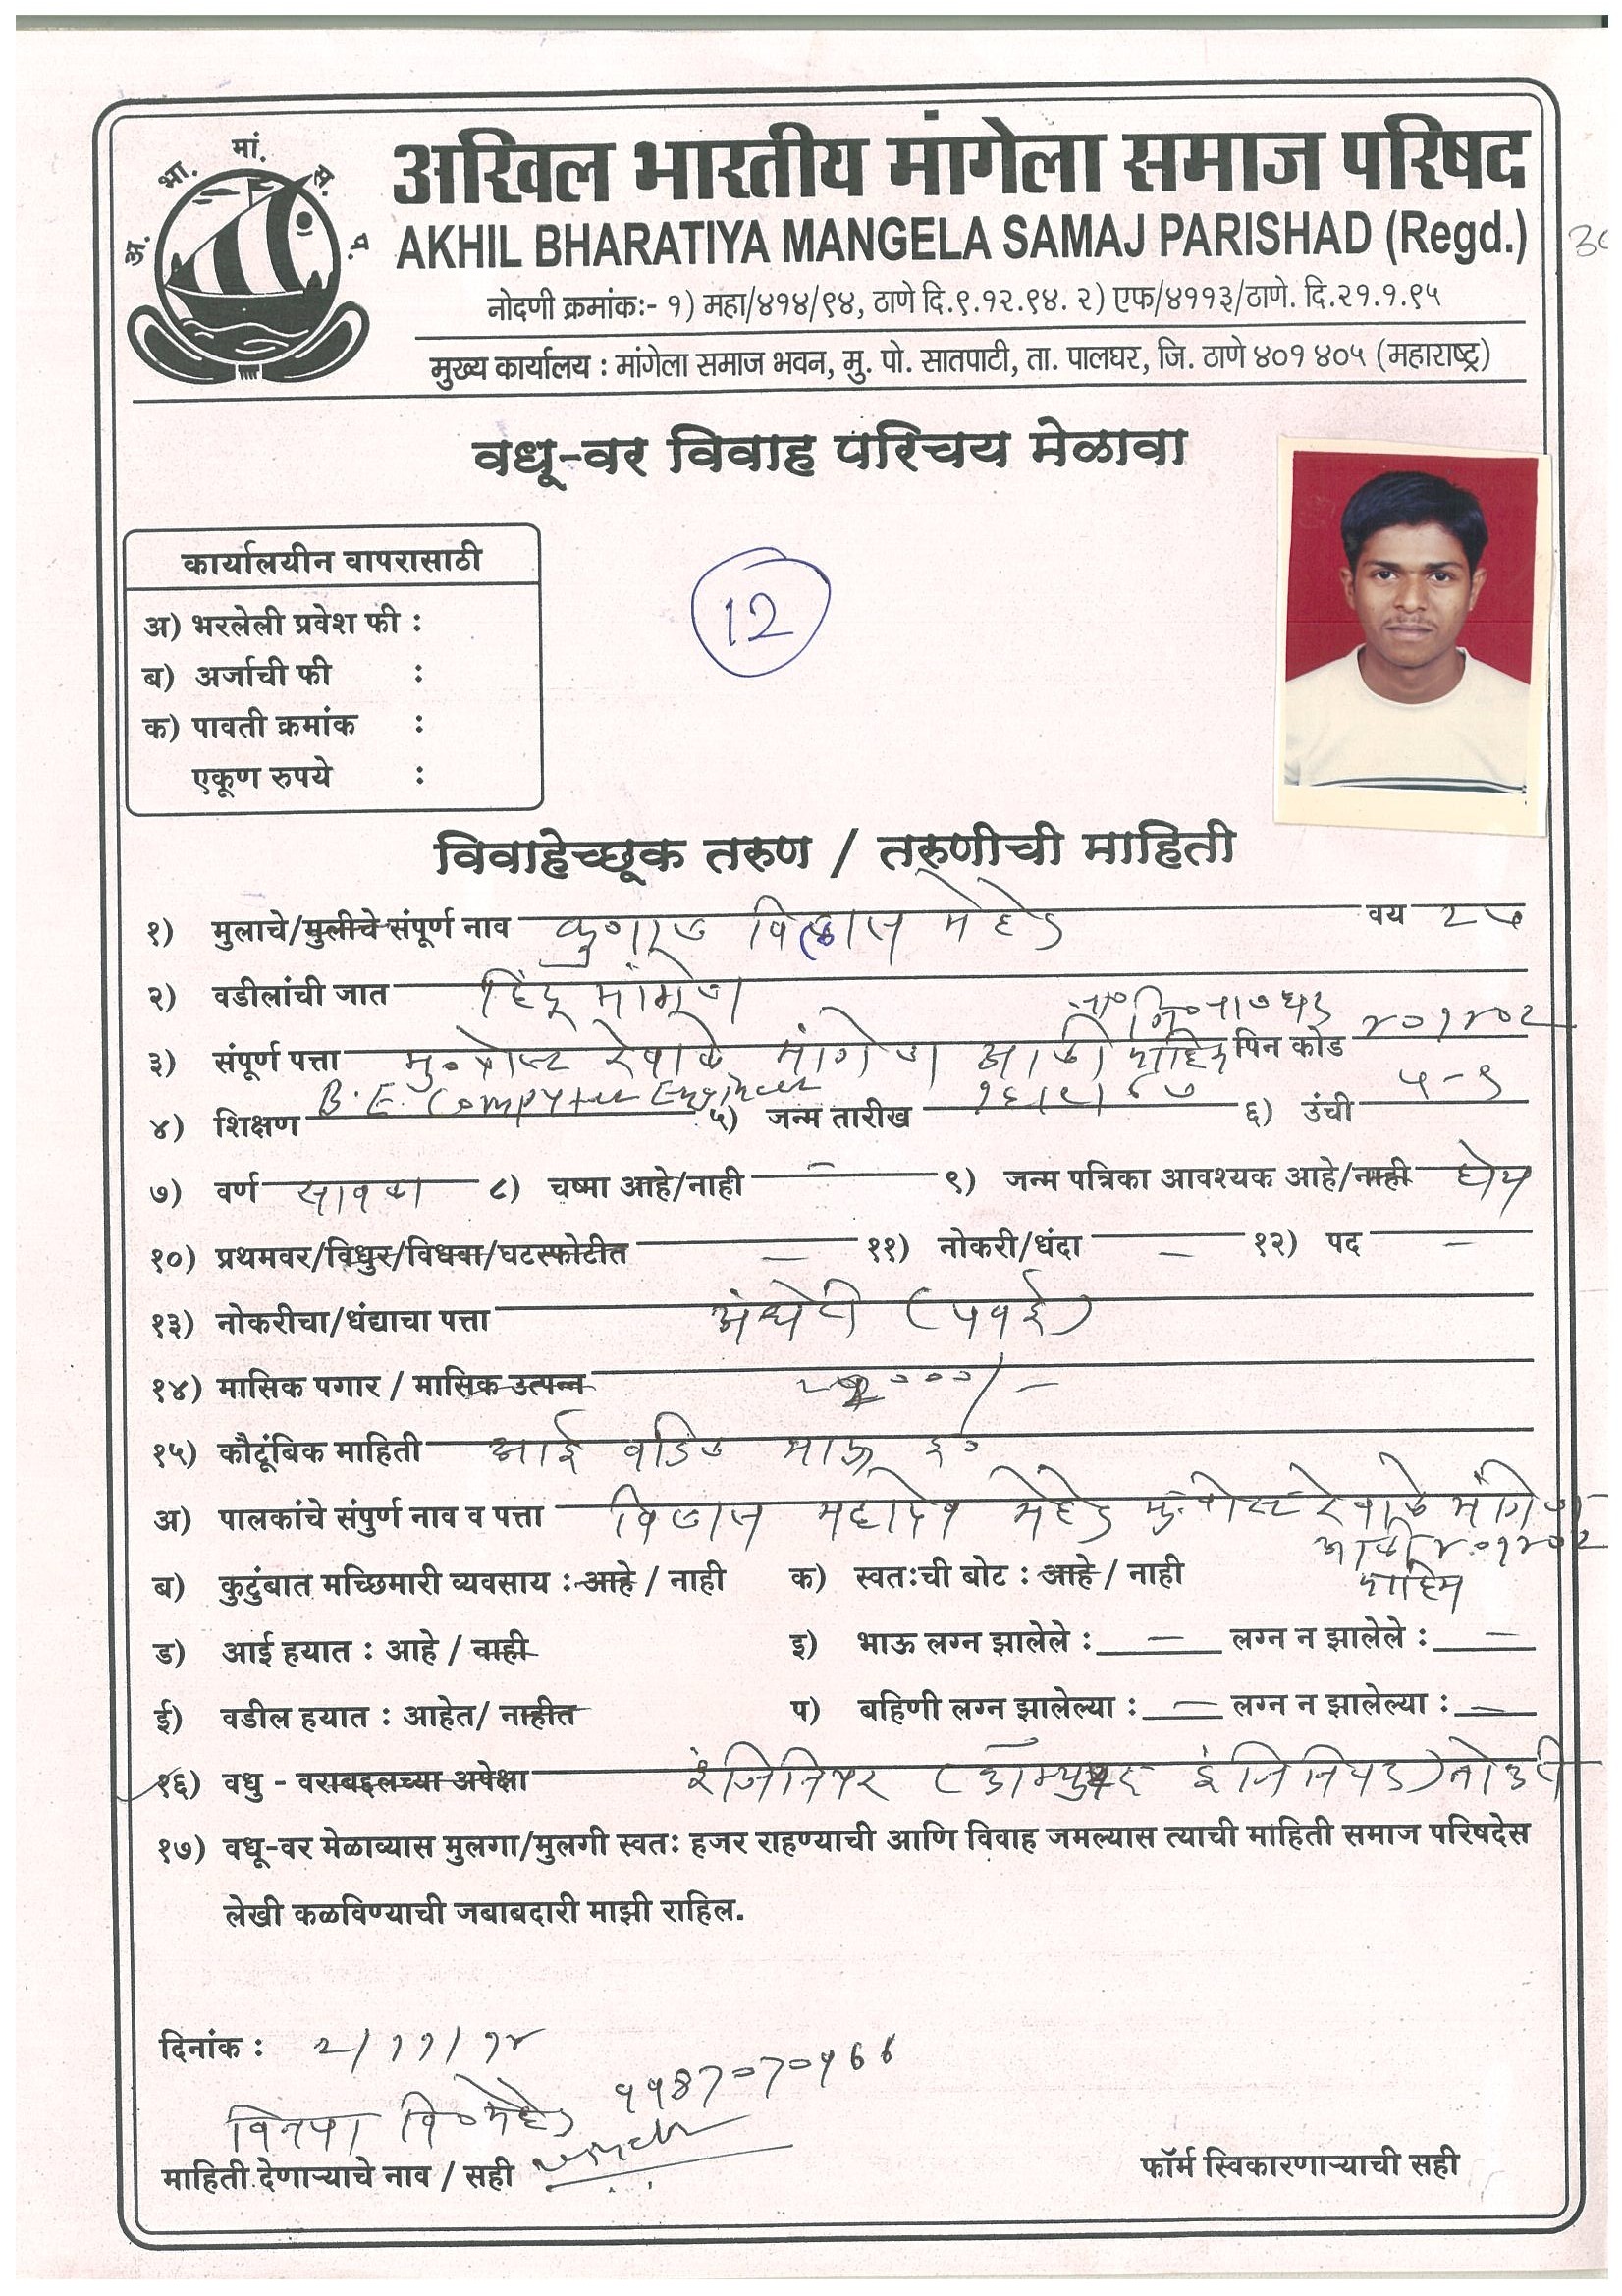 अ. भा. मां. स. प.
अखिल भारतीय मांगेला समाज परिषद
AKHIL BHARATIYA MANGELA SAMAJ PARISHAD (Regd.)
नोदणी क्रमांकः- १) महा/४१४/९४, ठाणे दि.९.१२.९४. २) एफ/४११३/ठाणे. दि.२१.१.९५
मुख्य कार्यालय : मांगेला समाज भवन, मु. पो. सातपाटी, ता. पालघर, जि. ठाणे ४०१ ४०५ (महाराष्ट्र)
वधू-वर विवाह परिचय मेळावा
कार्यालयीन वापरासाठी
अ) भरलेली प्रवेश फी :
ब) अर्जाची फी :
क) पावती क्रमांक :
एकूण रुपये :
12
विवाहेच्छूक तरुण / तरुणीची माहिती
१) मुलाचे/मुलीचे संपूर्ण नाव विलास मेहेर वय २५
२) वडीलांची जात हिंदू मांगेला
३) संपूर्ण पत्ता मु. पोस्ट मांगेला आळी माहिम पिन कोड ४०१४०२
४) शिक्षण B.E. Computer Engineer ५) जन्म तारीख ६) उंची ५-९
७) वर्ण सावळा ८) चष्मा आहे/नाही - ९) जन्म पत्रिका आवश्यक आहे/नाही होय
१०) प्रथमवर/विधुर/विधवा/घटस्फोटीत - ११) नोकरी/धंदा - १२) पद -
१३) नोकरीचा/धंद्याचा पत्ता अंधेरी (पवई)
१४) मासिक पगार / मासिक उत्पन्न
१५) कौटूंबिक माहिती आई वडिल भाऊ
अ) पालकांचे संपुर्ण नाव व पत्ता विलास महादेव मेहेर मु. पोस्ट मांगेला
आळी ४०१४०२
माहिम
ब) कुटुंबात मच्छिमारी व्यवसाय : आहे / नाही क) स्वतःची बोट : आहे / नाही
ड) आई हयात : आहे / नाही इ) भाऊ लग्न झालेले : - लग्न न झालेले : -
ई) वडील हयात : आहेत/ नाहीत प) बहिणी लग्न झालेल्या : - लग्न न झालेल्या : -
१६) वधु - वराबद्दलच्या अपेक्षा इंजिनियर
१७) वधू-वर मेळाव्यास मुलगा/मुलगी स्वतः हजर राहण्याची आणि विवाह जमल्यास त्याची माहिती समाज परिषदेस
लेखी कळविण्याची जबाबदारी माझी राहिल.
दिनांक : २/११/१४
मेहेर
माहिती देणाऱ्याचे नाव / सही फॉर्म स्विकारणाऱ्याची सही